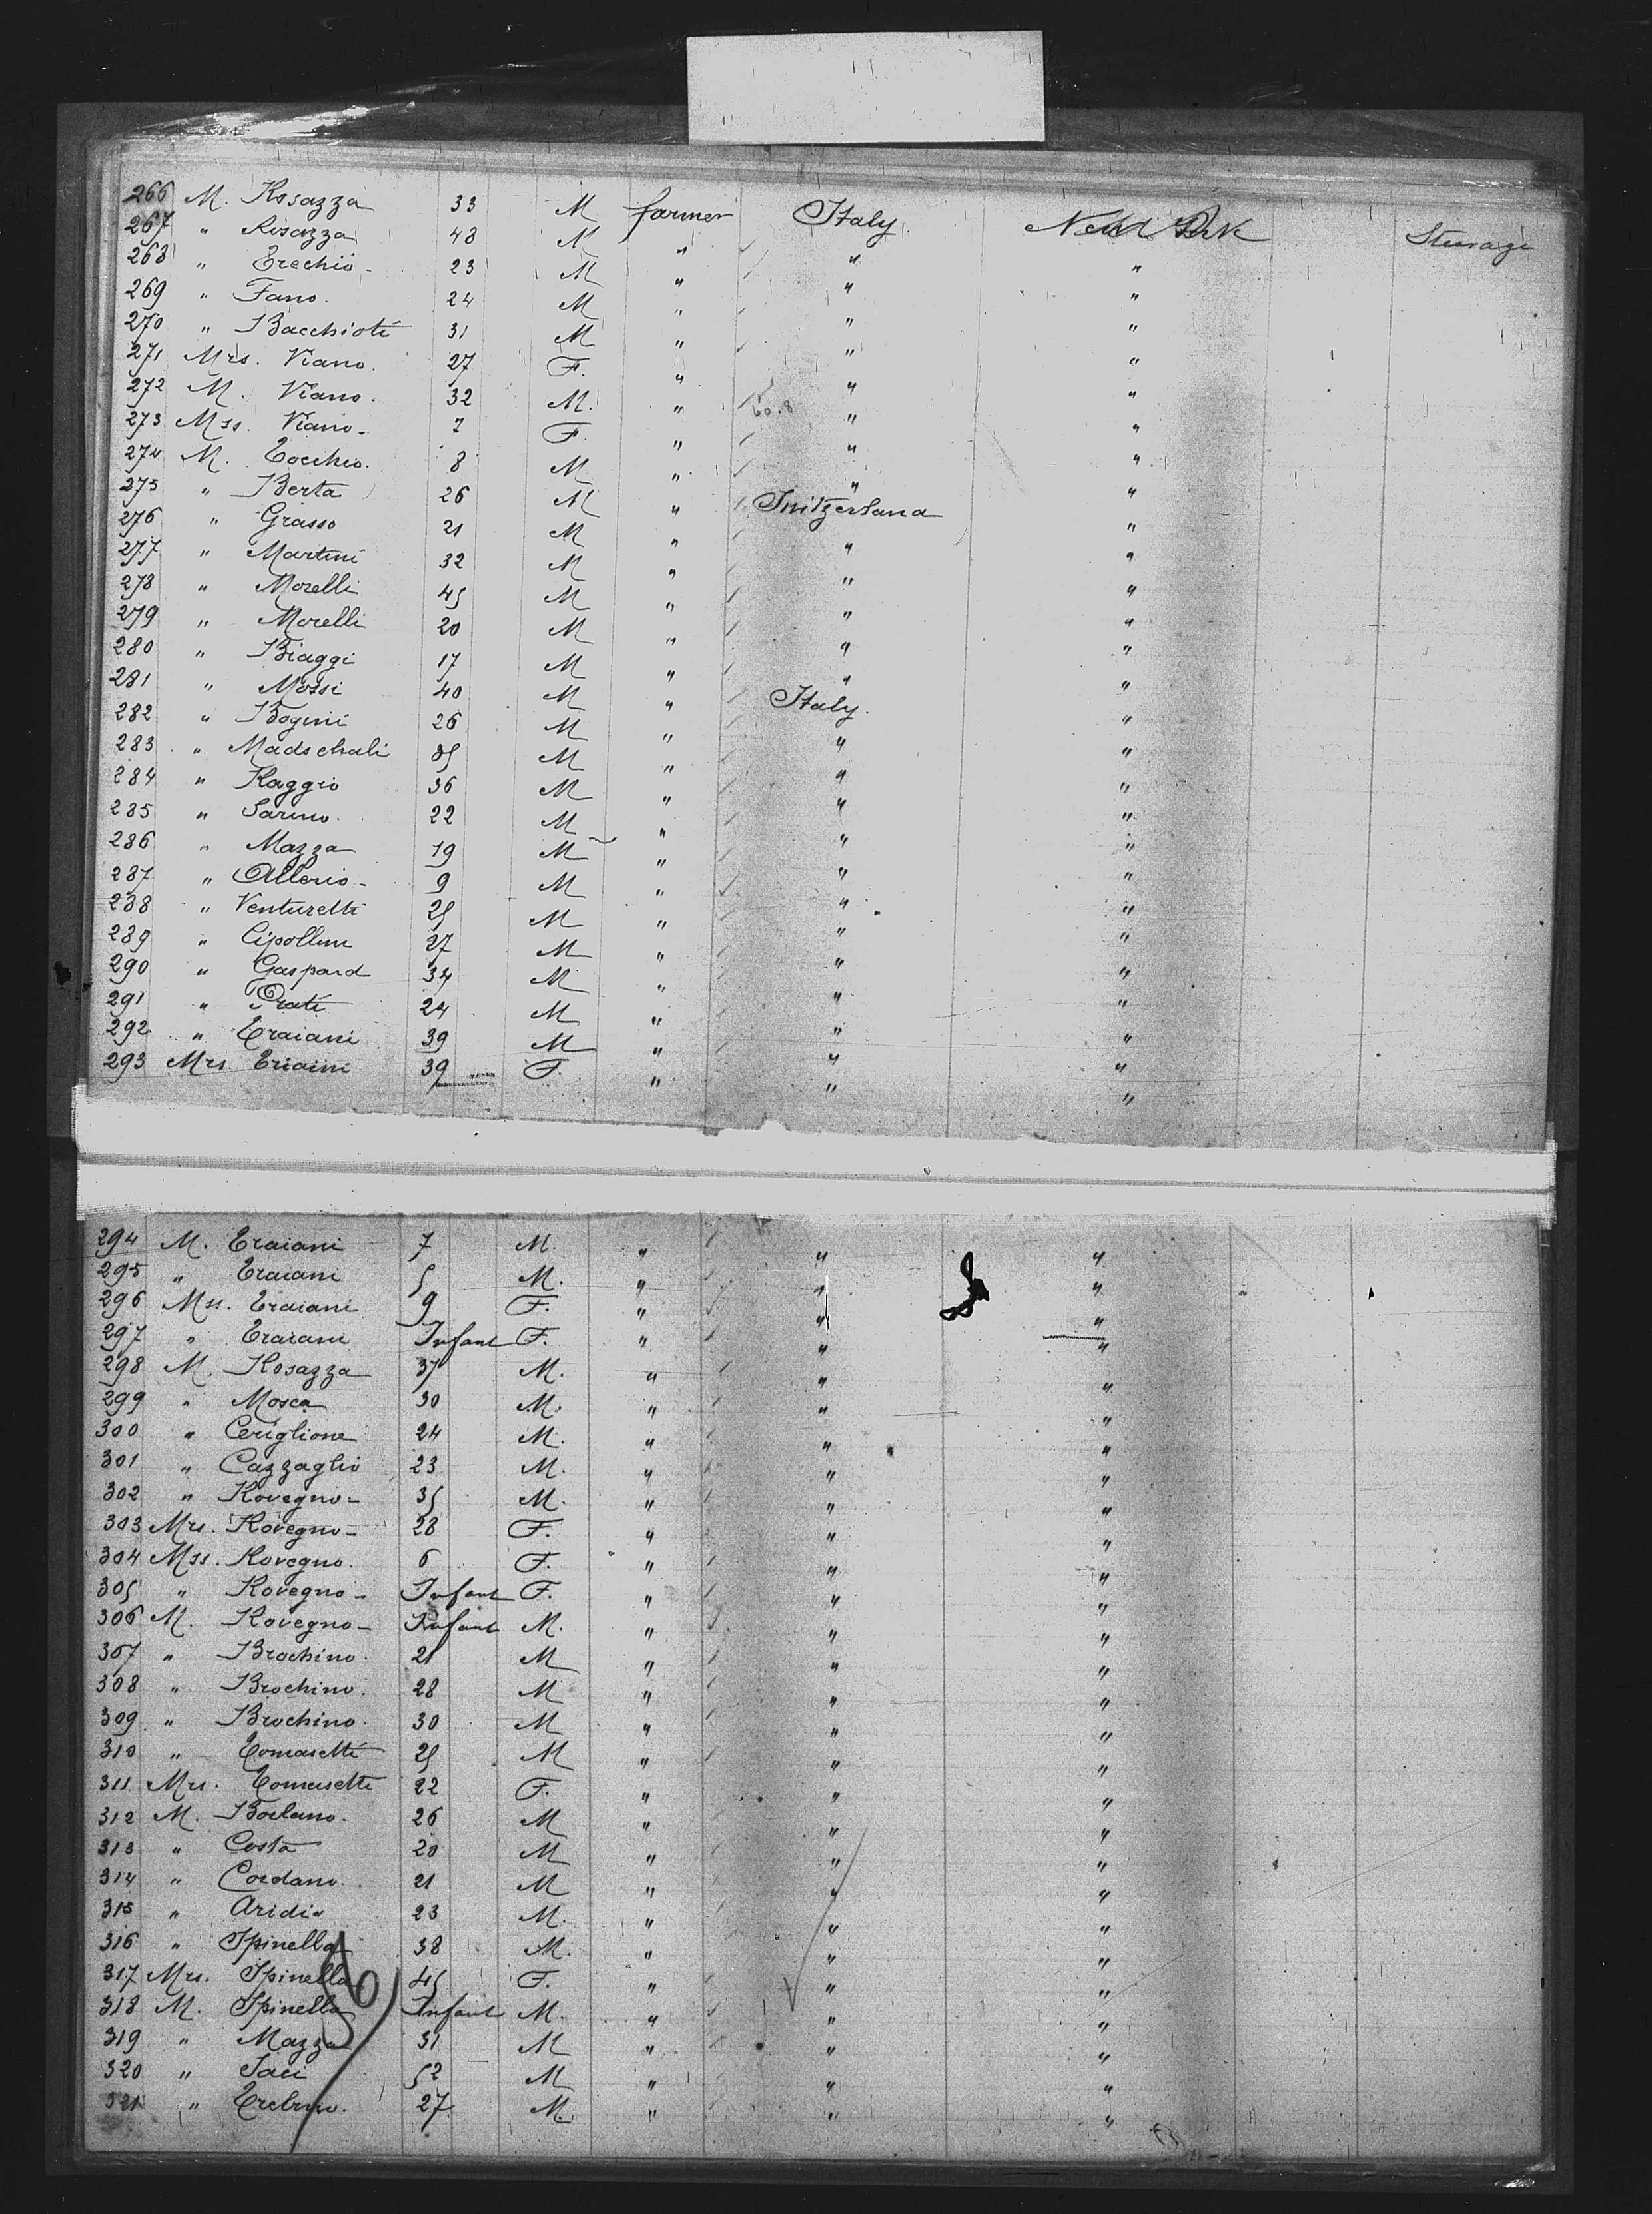 266 M. Rosazza 33 M farmer Italy. New York Steerage
267 " Rosazza 48 M " " "
268 " Erechio - 23 M " " "
269 " Fano. 24 M " " "
270 " Bacchioti 31 M " " "
271 Mrs. Viano. 27 F. " " "
272 M. Viano. 32 M. " " "
273 Mss. Viano - 7 F. " " "
274 M. Tocchio. 8 M " " "
275 " Berta 26 M " Switzerland "
276 " Grasso 21 M " " "
277 " Martini 32 M " " "
278 " Morelli 45 M " " "
279 " Morelli 20 M " " "
280 " Biaggi 17 M " " "
281 " Mossi 40 M " Italy. "
282 " Bogini 26 M " " "
283 " Madschali 35 M " " "
284 " Raggio 36 M " " "
285 " Sarino. 22 M " " "
286 " Mazza 19 M " " "
287 " Allorio - 9 M " " "
288 " Venturelli 25 M " " "
289 " Cipollini 27 M " " "
290 " Gaspard 34 M " " "
291 " Prati 24 M " " "
292 " Traiani 39 M " " "
293 Mrs. Traiani 39 F. " " "
294 M. Traiani 7 M. " " "
295 " Traiani 5 M. " " "
296 Mss. Traiani 9 F. " " "
297 " Traiani Infant F. " " "
298 M. Rosazza 37 M. " " "
299 " Mosca 30 M. " " "
300 " Ceriglione 24 M. " " "
301 " Cazzaglio 23 M. " " "
302 " Rovegno - 35 M. " " "
303 Mrs. Rovegno - 28 F. " " "
304 Mss. Rovegno. 6 F. " " "
305 " Rovegno - Infant F. " " "
306 M. Rovegno - Infant M. " " "
307 " Brochino. 21 M " " "
308 " Brochino. 28 M " " "
309 " Brochino. 30 M " " "
310 " Tomasetti 25 M " " "
311 Mrs. Tomasetti 22 F. " " "
312 M. Boelano. 26 M " " "
313 " Costa 20 M " " "
314 " Cordano. 21 M " " "
315 " Aridia 23 M. " " "
316 " Spinella 38 M. " " "
317 Mrs. Spinella 45 F. " " "
318 M. Spinella Infant M. " " "
319 " Mazza 31 M " " "
320 " Saci 52 M " " "
321 " 27 M. " " "